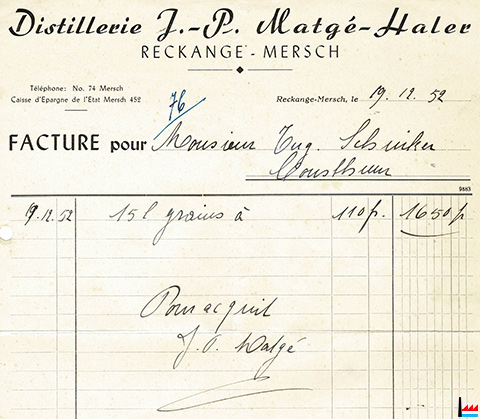 Distillerie J.-P. Matgé-Haler
RECKANGE - MERSCH
Téléphone: No. 74 Mersch
Caisse d'Epargne de l'Etat Mersch 452
76
Reckange-Mersch, le 19.12.52
FACTURE pour Monsieur Eug. Schinker
Consthum
9883
9.12.52 15 l grains à 110 f. 1650 f
Pour acquit
J. P. Matgé